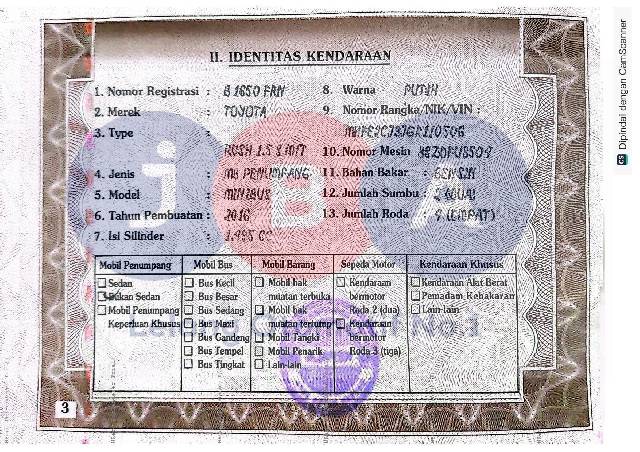 II. IDENTITAS KENDARAAN
1. Nomor Registrasi :
2. Merek : TOYOTA
3. Type : RUSH 1.5 S M/T
4. Jenis : MB PENUMPANG
5. Model : MINIBUS
6. Tahun Pembuatan : 2016
7. Isi Silinder : 1.495 CC
8. Warna PUTIH
9. Nomor Rangka/NIK/VIN :
10. Nomor Mesin
11. Bahan Bakar : BENSIN
12. Jumlah Sumbu : 2 (DUA)
13. Jumlah Roda : 4 (EMPAT)
Mobil Penumpang
Sedan
Bukan Sedan
Mobil Penumpang
Keperluan Khusus
Mobil Bus
Bus Kecil
Bus Besar
Bus Sedang
Bus Maxi
Bus Gandeng
Bus Tempel
Bus Tingkat
Mobil Barang
Mobil bak
muatan terbuka
Mobil bak
muatan tertutup
Mobil Tangki
Mobil Penarik
Lain-lain
Sepeda Motor
Kendaraan
bermotor
Roda 2 (dua)
Kendaraan
bermotor
Roda 3 (tiga)
Kendaraan Khusus
Kendaraan Alat Berat
Pemadam Kebakaran
Lain-lain
3
CS Dipindai dengan CamScanner